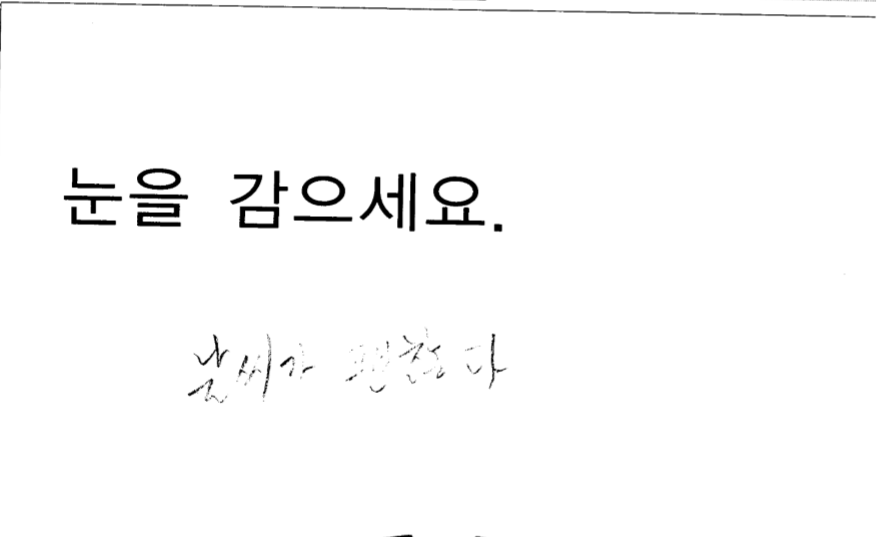 눈을 감으세요.
날씨가 괜찮다